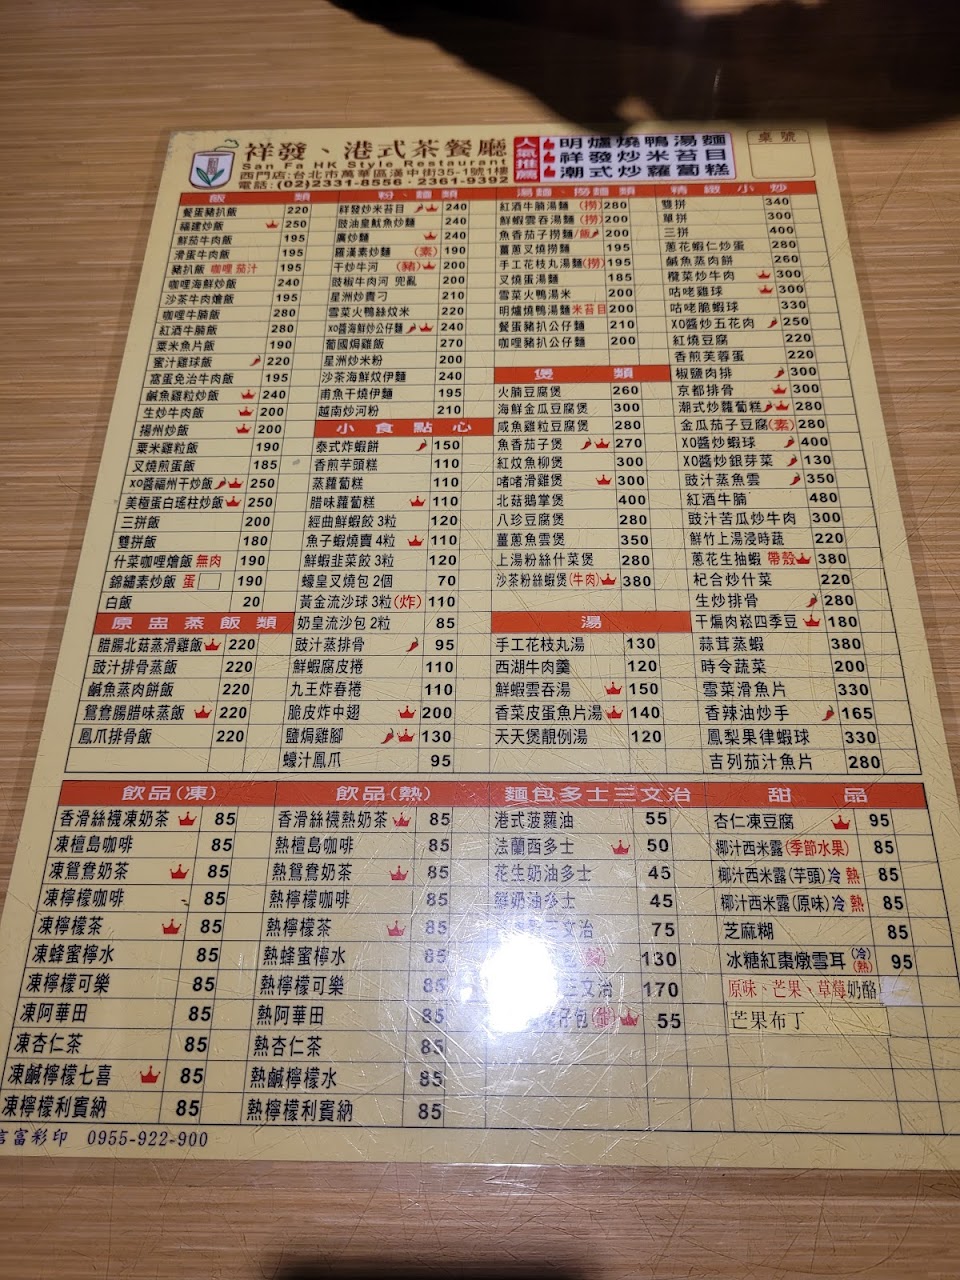 祥發、港式茶餐廳
San Fa HK Style Restaurant
西門店:台北市萬華區漢中街35-1號1樓
電話:(02)2331-8556、2361-9392
人氣推薦
明爐燒鴨湯麵
祥發炒米苔目
潮式炒蘿蔔糕
桌號
飯類
餐蛋豬扒飯 220
福建炒飯 250
鮮茄牛肉飯 195
滑蛋牛肉飯 195
豬扒飯 咖哩 茄汁 195
咖哩海鮮炒飯 240
沙茶牛肉燴飯 195
咖哩牛腩飯 280
紅酒牛腩飯 280
粟米魚片飯 190
蜜汁雞球飯 220
窩蛋免治牛肉飯 195
鹹魚雞粒炒飯 240
生炒牛肉飯 200
揚州炒飯 200
粟米雞粒飯 190
叉燒煎蛋飯 185
XO醬福州干炒飯 250
美極蛋白瑤柱炒飯 250
三拼飯 200
雙拼飯 180
什菜咖哩燴飯 無肉 190
錦繡素炒飯 蛋 190
白飯 20
原盅蒸飯類
腊腸北菇蒸滑雞飯 220
豉汁排骨蒸飯 220
鹹魚蒸肉餅飯 220
鴛鴦腸腊味蒸飯 220
鳳爪排骨飯 220
粉、麵類
祥發炒米苔目 240
豉油皇魷魚炒麵 220
廣炒麵 240
羅漢素炒麵 (素) 190
干炒牛河 (豬) 200
豉椒牛肉河 兜亂 200
星洲炒賣刁 210
雪菜火鴨絲炆米 220
XO醬海鮮炒公仔麵 240
葡國焗雞飯 270
星洲炒米粉 200
沙茶海鮮炆伊麵 240
甫魚干燒伊麵 195
越南炒河粉 210
小食點心
泰式炸蝦餅 150
香煎芋頭糕 110
蒸蘿蔔糕 110
腊味蘿蔔糕 110
經曲鮮蝦餃 3粒 120
魚子蝦燒賣 4粒 110
鮮蝦韭菜餃 3粒 120
蠔皇叉燒包 2個 70
黃金流沙球 3粒(炸) 110
奶皇流沙包 2粒 85
豉汁蒸排骨 95
鮮蝦腐皮捲 110
九王炸春捲 110
脆皮炸中翅 200
鹽焗雞腳 130
蠔汁鳳爪 95
湯麵、撈麵類
紅酒牛腩湯麵 (撈) 280
鮮蝦雲吞湯麵 (撈) 200
魚香茄子撈麵/飯 200
薑蔥叉燒撈麵 195
手工花枝丸湯麵(撈) 195
叉燒蛋湯麵 185
雪菜火鴨湯米 200
明爐燒鴨湯麵 米苔目 200
餐蛋豬扒公仔麵 210
咖哩豬扒公仔麵 200
煲類
火腩豆腐煲 260
海鮮金瓜豆腐煲 300
咸魚雞粒豆腐煲 280
魚香茄子煲 270
紅炆魚柳煲 300
啫啫滑雞煲 300
北菇鵝掌煲 400
八珍豆腐煲 280
薑蔥魚雲煲 350
上湯粉絲什菜煲 280
沙茶粉絲蝦煲(牛肉) 380
湯
手工花枝丸湯 130
西湖牛肉羹 120
鮮蝦雲吞湯 150
香菜皮蛋魚片湯 140
天天煲靚例湯 120
精緻小炒
雙拼 340
單拼 300
三拼 400
蔥花蝦仁炒蛋 280
鹹魚蒸肉餅 260
欖菜炒牛肉 300
咕咾雞球 300
咕咾脆蝦球 330
XO醬炒五花肉 250
紅燒豆腐 220
香煎芙蓉蛋 220
椒鹽肉排 300
京都排骨 300
潮式炒蘿蔔糕 280
金瓜茄子豆腐(素) 280
XO醬炒蝦球 400
XO醬炒銀芽菜 130
豉汁蒸魚雲 350
紅酒牛腩 480
豉汁苦瓜炒牛肉 300
鮮竹上湯浸時蔬 220
蔥花生抽蝦 帶殼 380
杞合炒什菜 220
生炒排骨 280
干煸肉崧四季豆 180
蒜茸蒸蝦 380
時令蔬菜 200
雪菜滑魚片 330
香辣油炒手 165
鳳梨果律蝦球 330
吉列茄汁魚片 280
飲品(凍)
香滑絲襪凍奶茶 85
凍檀島咖啡 85
凍鴛鴦奶茶 85
凍檸檬咖啡 85
凍檸檬茶 85
凍蜂蜜檸水 85
凍檸檬可樂 85
凍阿華田 85
凍杏仁茶 85
凍鹹檸檬七喜 85
凍檸檬利賓納 85
飲品(熱)
香滑絲襪熱奶茶 85
熱檀島咖啡 85
熱鴛鴦奶茶 85
熱檸檬咖啡 85
熱檸檬茶 85
熱蜂蜜檸水 85
熱檸檬可樂 85
熱阿華田 85
熱杏仁茶 85
熱鹹檸檬水 85
熱檸檬利賓納 85
麵包多士三文治
港式菠蘿油 55
法蘭西多士 50
花生奶油多士 45
鮮奶油多士 45
三文治 75
130
三文治 170
仔包(甜) 55
甜品
杏仁凍豆腐 95
椰汁西米露(季節水果) 85
椰汁西米露(芋頭)冷 熱 85
椰汁西米露(原味)冷 熱 85
芝麻糊 85
冰糖紅棗燉雪耳 (冷)(熱) 95
原味、芒果、草莓奶酪
芒果布丁
信富彩印 0955-922-900